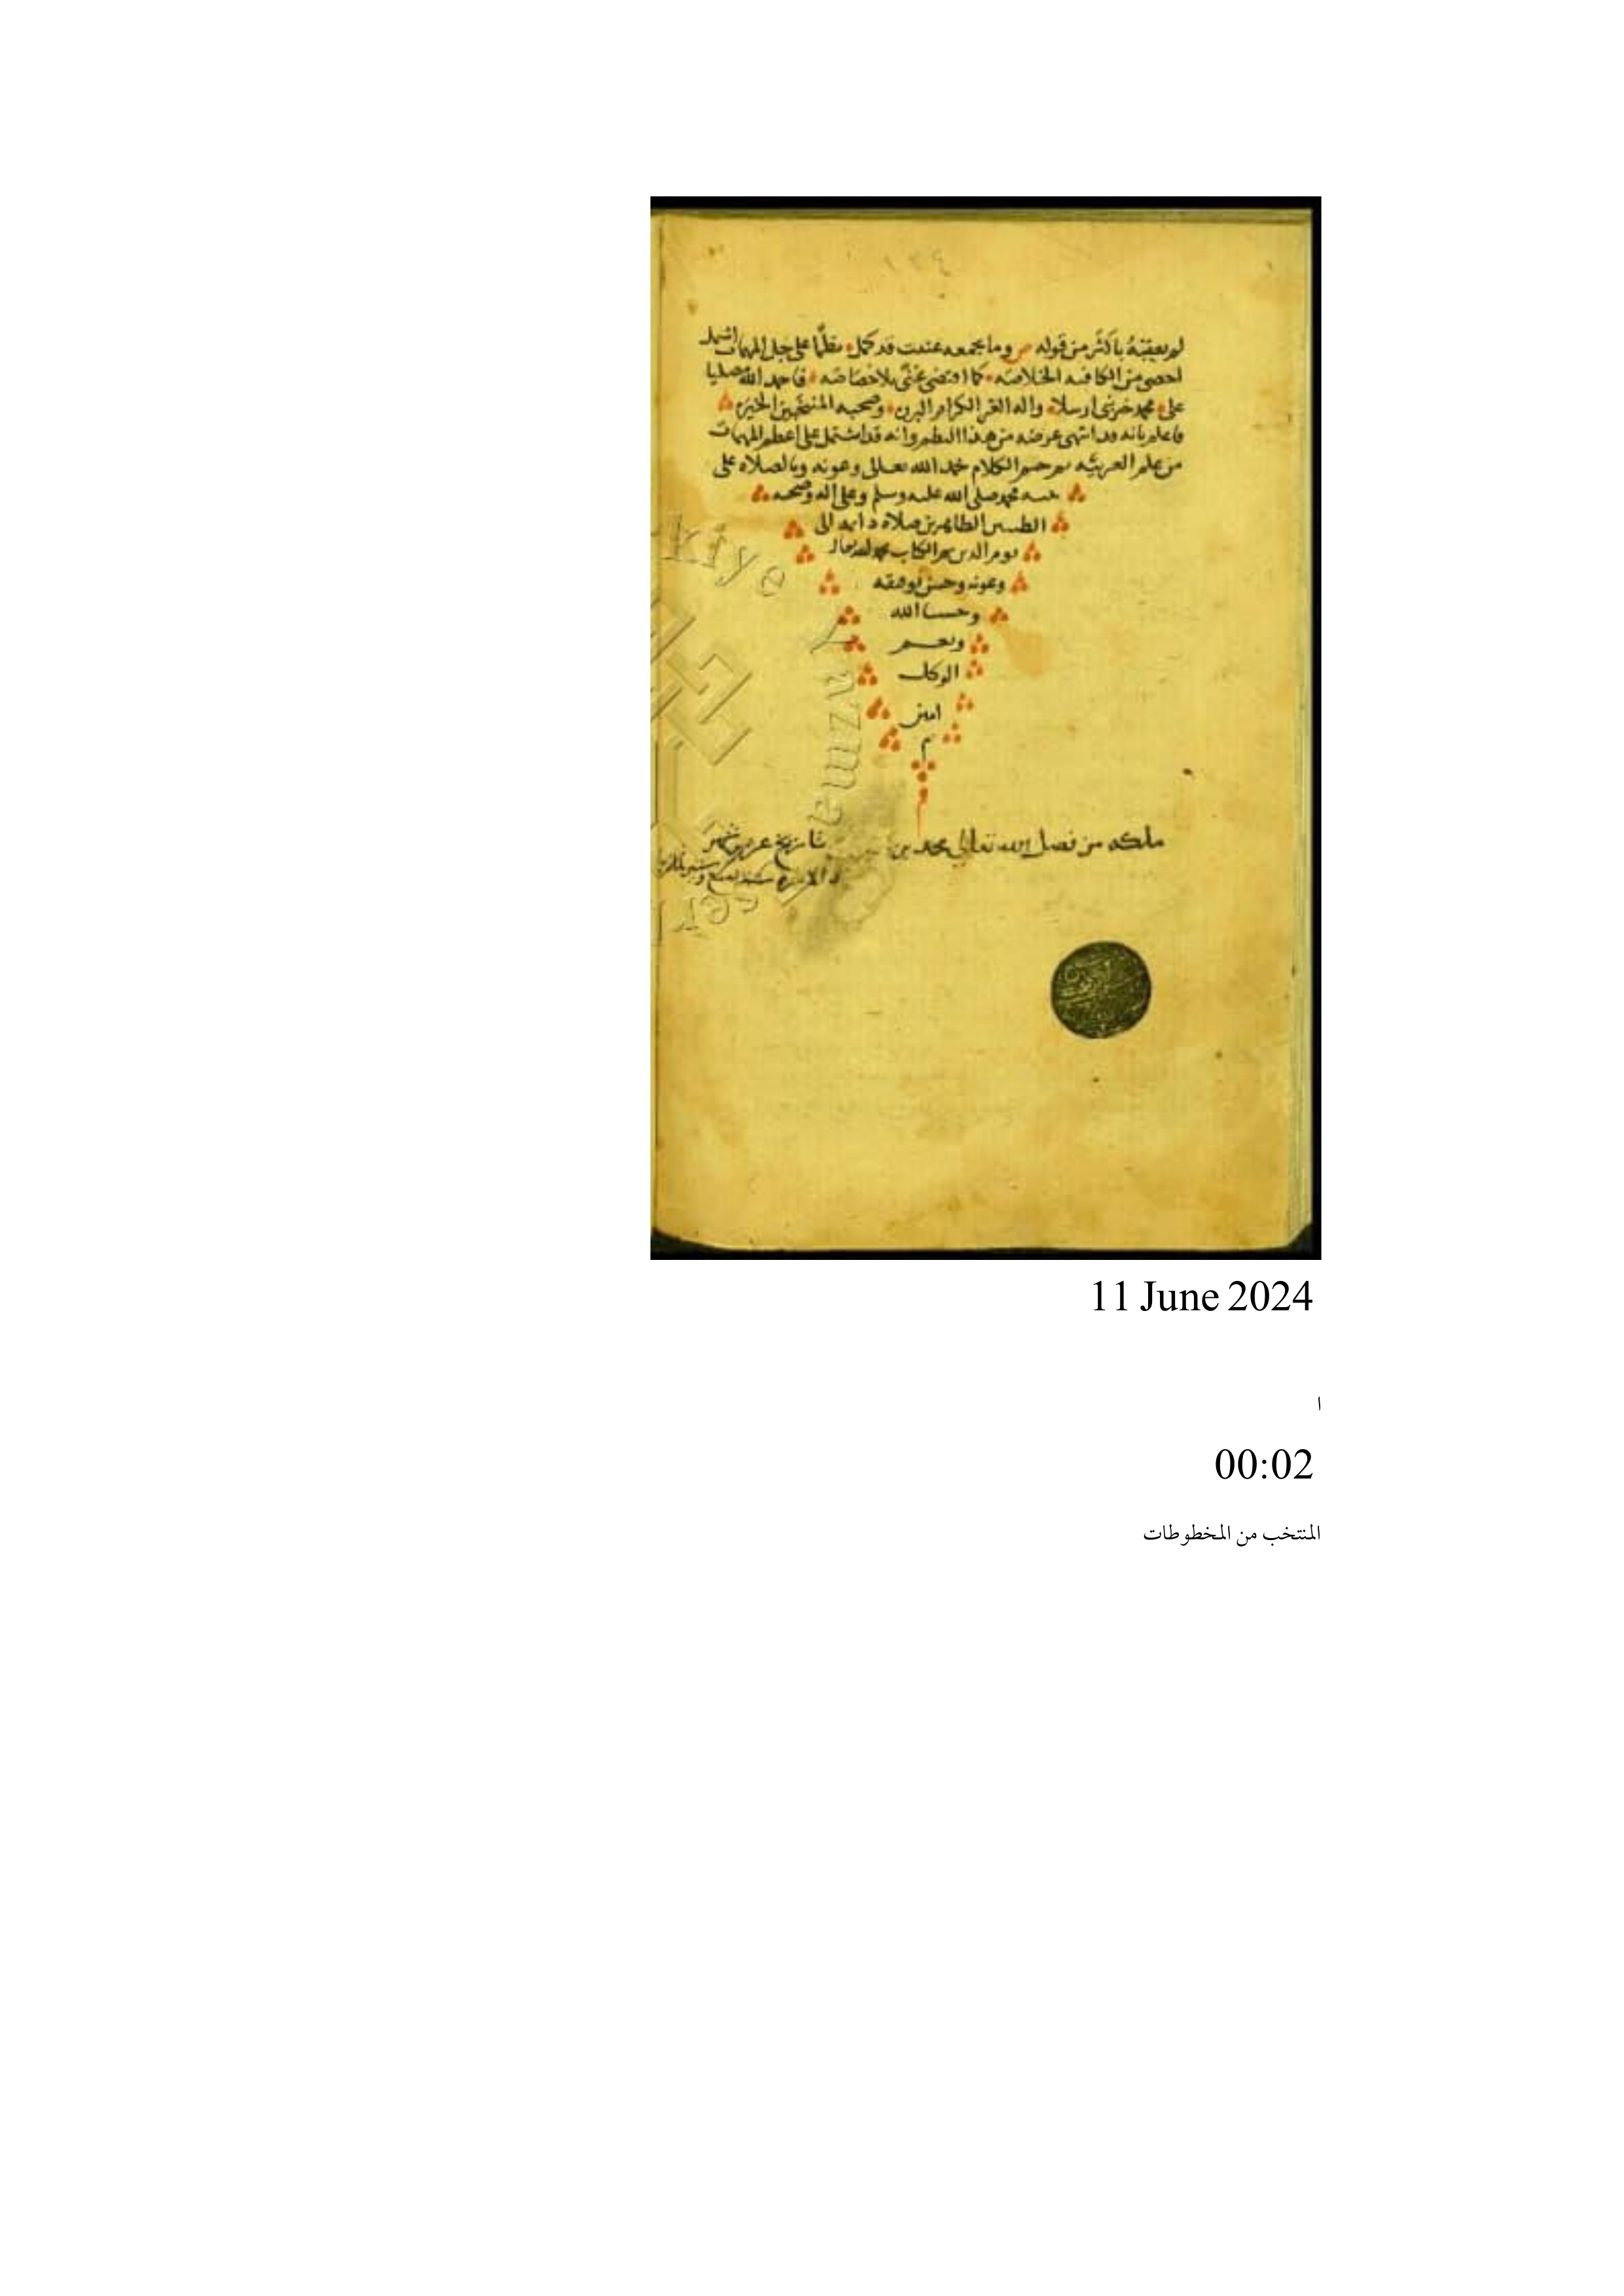 ١٣٤
لم يعقبه باكثر من قوله ص وما بجمعه عنيت قد كمل نظما على جل المهمات اشتمل
احصى من الكافيه الخلاصه كما اقتضى غنى بلا خصاصه فاحمد الله مصليا
على محمد خير نبى ارسلا واله الغر الكرام البرره وصحبه المنتخبين الخيره
فاعلم بانه قد انتهى غرضه من هذا النظم وانه قد اشتمل على اعظم المهمات
من علم العربيه ثم ختم الكلام بحمد الله تعالى وعونه وبالصلاه على
نبيه محمد صلى الله عليه وسلم وعلى اله وصحبه
الطيبين الطاهرين صلاة دايمه الى
يوم الدين نجز الكتاب بحمد الله تعالى
وعونه وحسن توفيقه
وحسبنا الله
ونعم
الوكيل
امين
م
ملكه من فضل الله تعالى محمد بن
تاريخ
Türkiye Yazma Eserler
11 June 2024
ا
00:02
المنتخب من المخطوطات